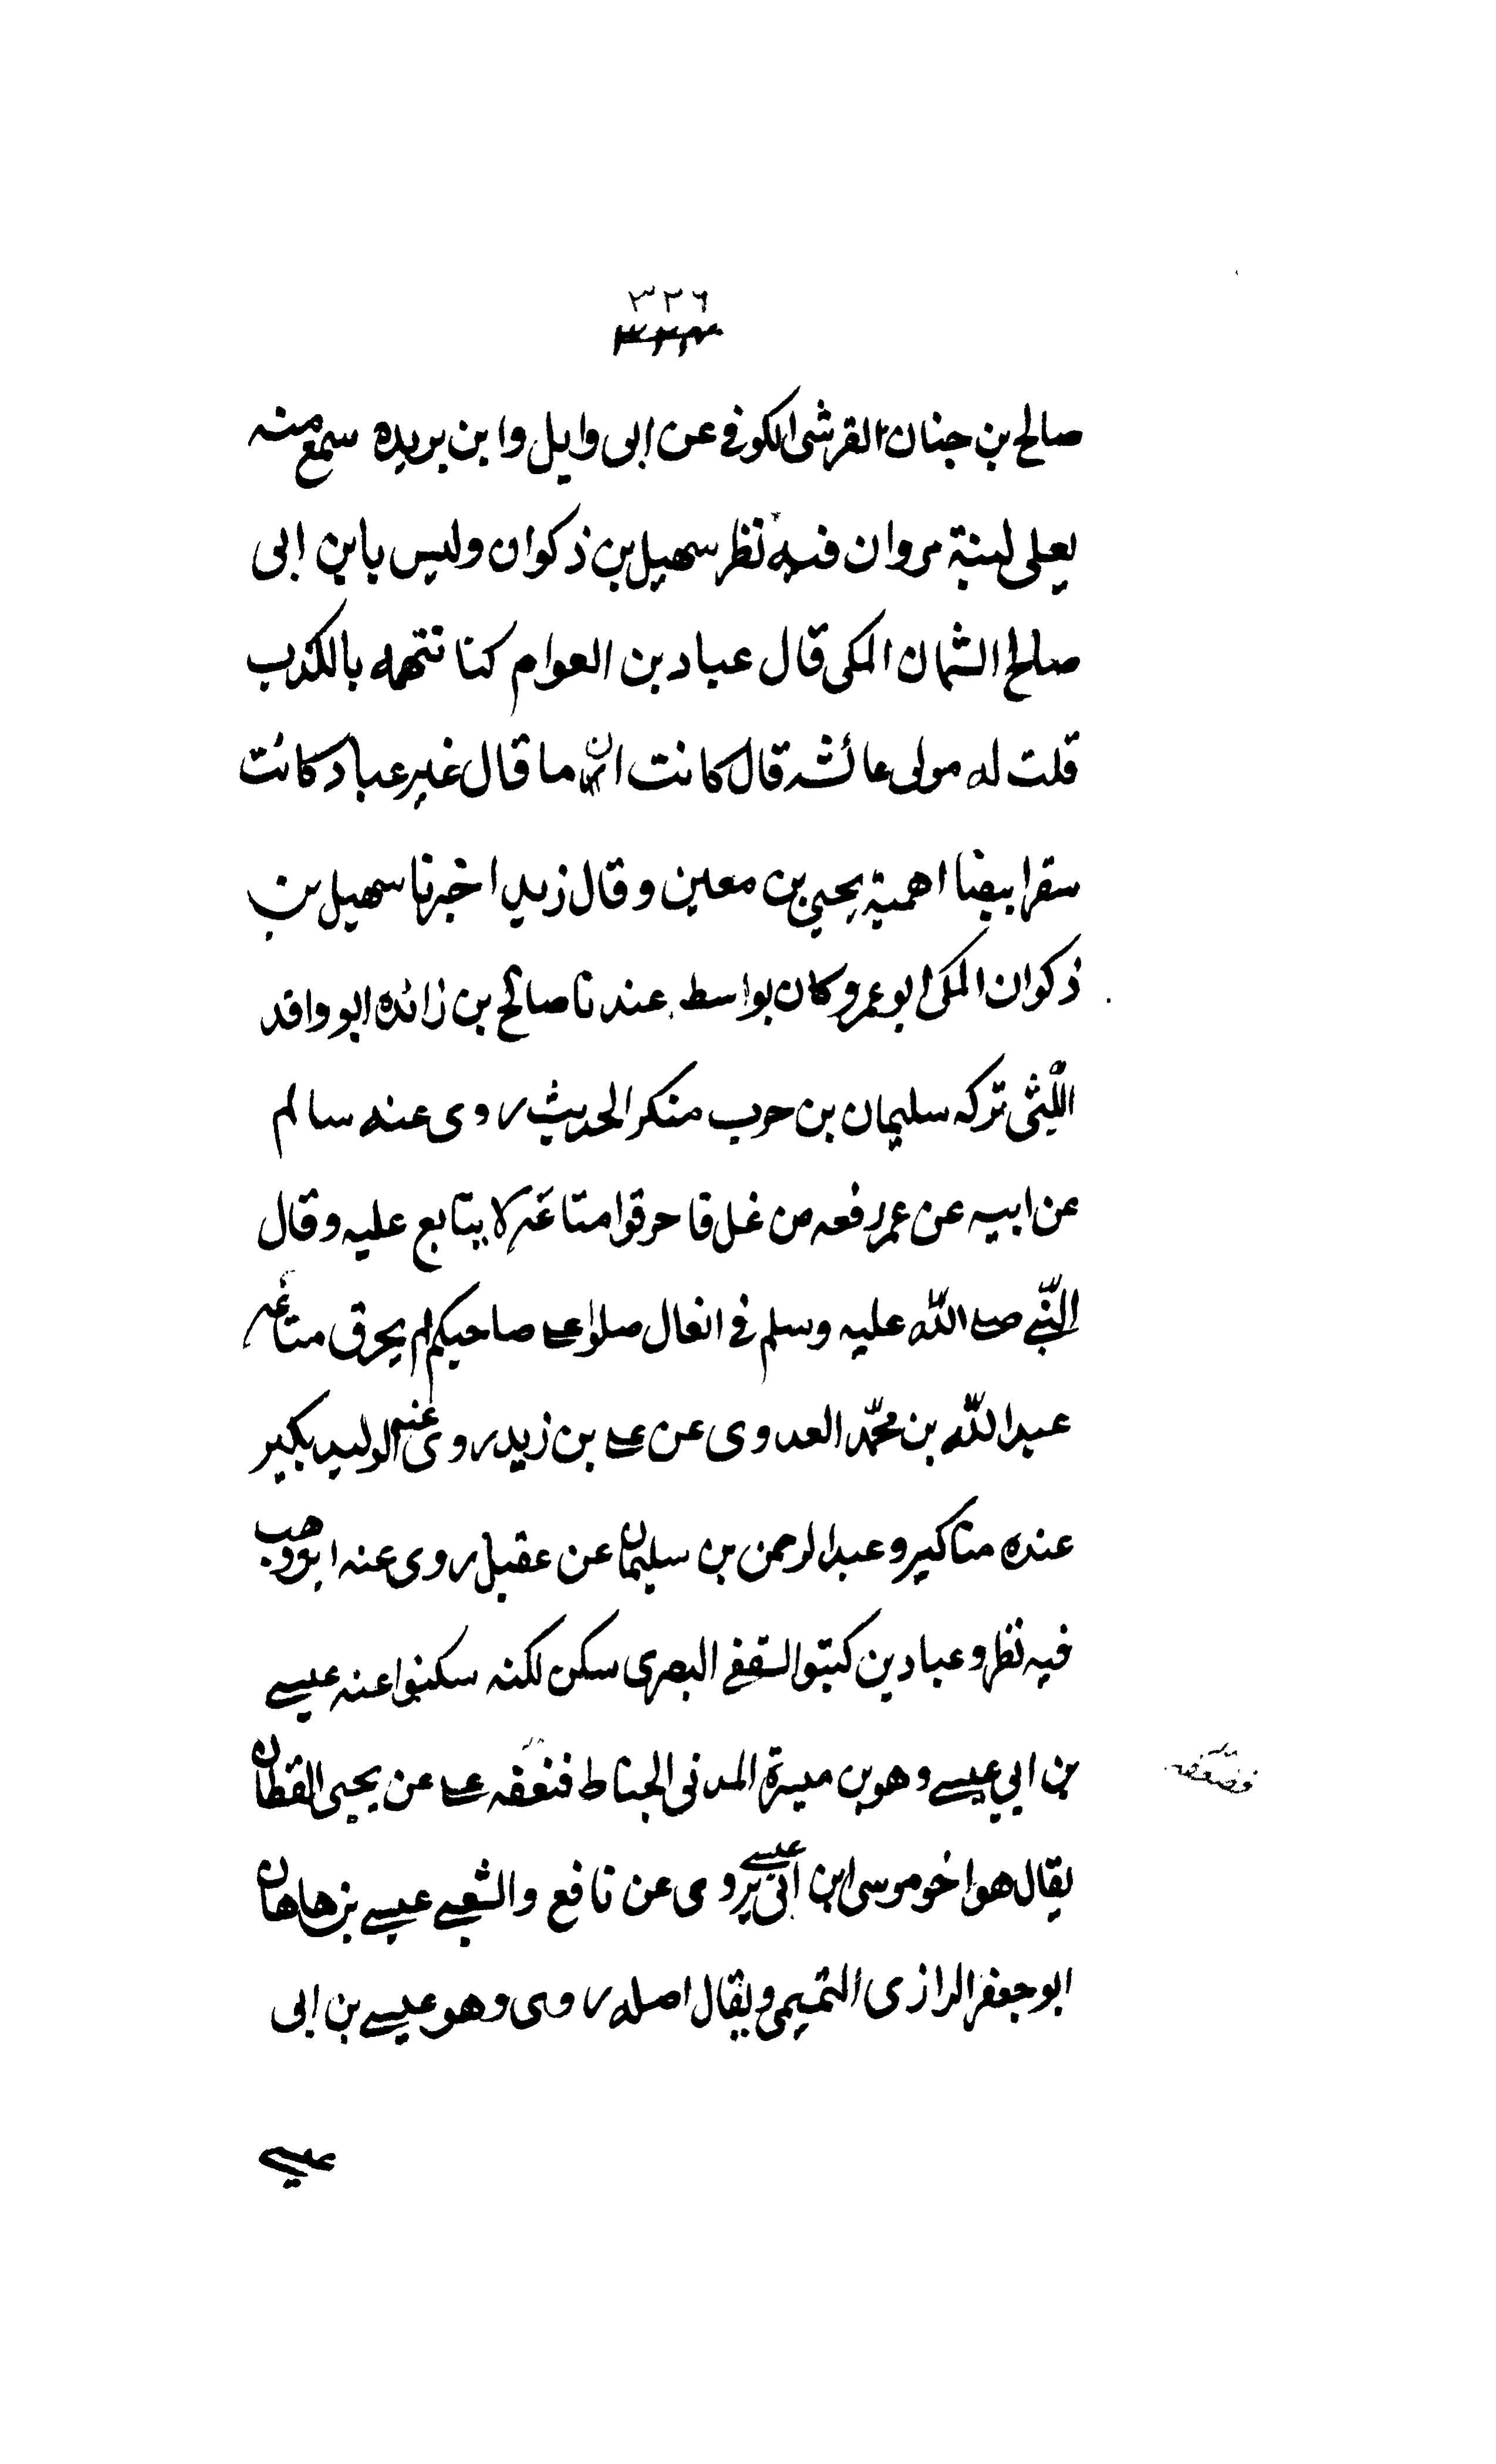 ٣٢٦
صالح بن جنان القرشى الكوفى عن ابى وايل وابن بريده سمع منه
يعلى لبنة مروان فيه نظر سهيل بن ذكوان وليس بابن ابى
صالح الشمان المكى قال عباد بن العوام كنا نتهمه بالكذب
قلت له مولى عائشه قال كانت ما قال غير عباد كانت
سقرا بيضا اهمية يحيى بن معين وقال زيد اخبرنا سهيل بن
ذكوان المكى ابو عمرو كان بواسط عندنا صالح بن زائده ابو واقد
الليثى تركه سليمان بن حرب منكر الحديث روى عنه سالم
عن ابيه عن عمر رفعه من غل فاحرقوا متاعه لا يتابع عليه وقال
النبى صلى الله عليه وسلم فى انغال صلوا على صاحبكم لم يحرق متاعه
عبد الله بن محمد العدوى عن على بن زيد روى عنه الوليد بكير
عنده مناكير وعبد الرحمن بن سليمان عن عقيل روى عنه ابو وهب
فيه نظر وعباد بن كبتوا السقفى البصرى سكن لكنه سكنوا عنه عيسى
بن ابى عيسى وهو بن ميسرة المدنى الجناط فنعفه على عن يحيى القطان
فضعفه
يقال هو اخو موسى ابن ابى عيسى يروى عن نافع والشعبى عيسى بن هاهان
ابو جعفر الرازى التميمى ويقال اصله روى وهو عيسى بن ابى
عيسى